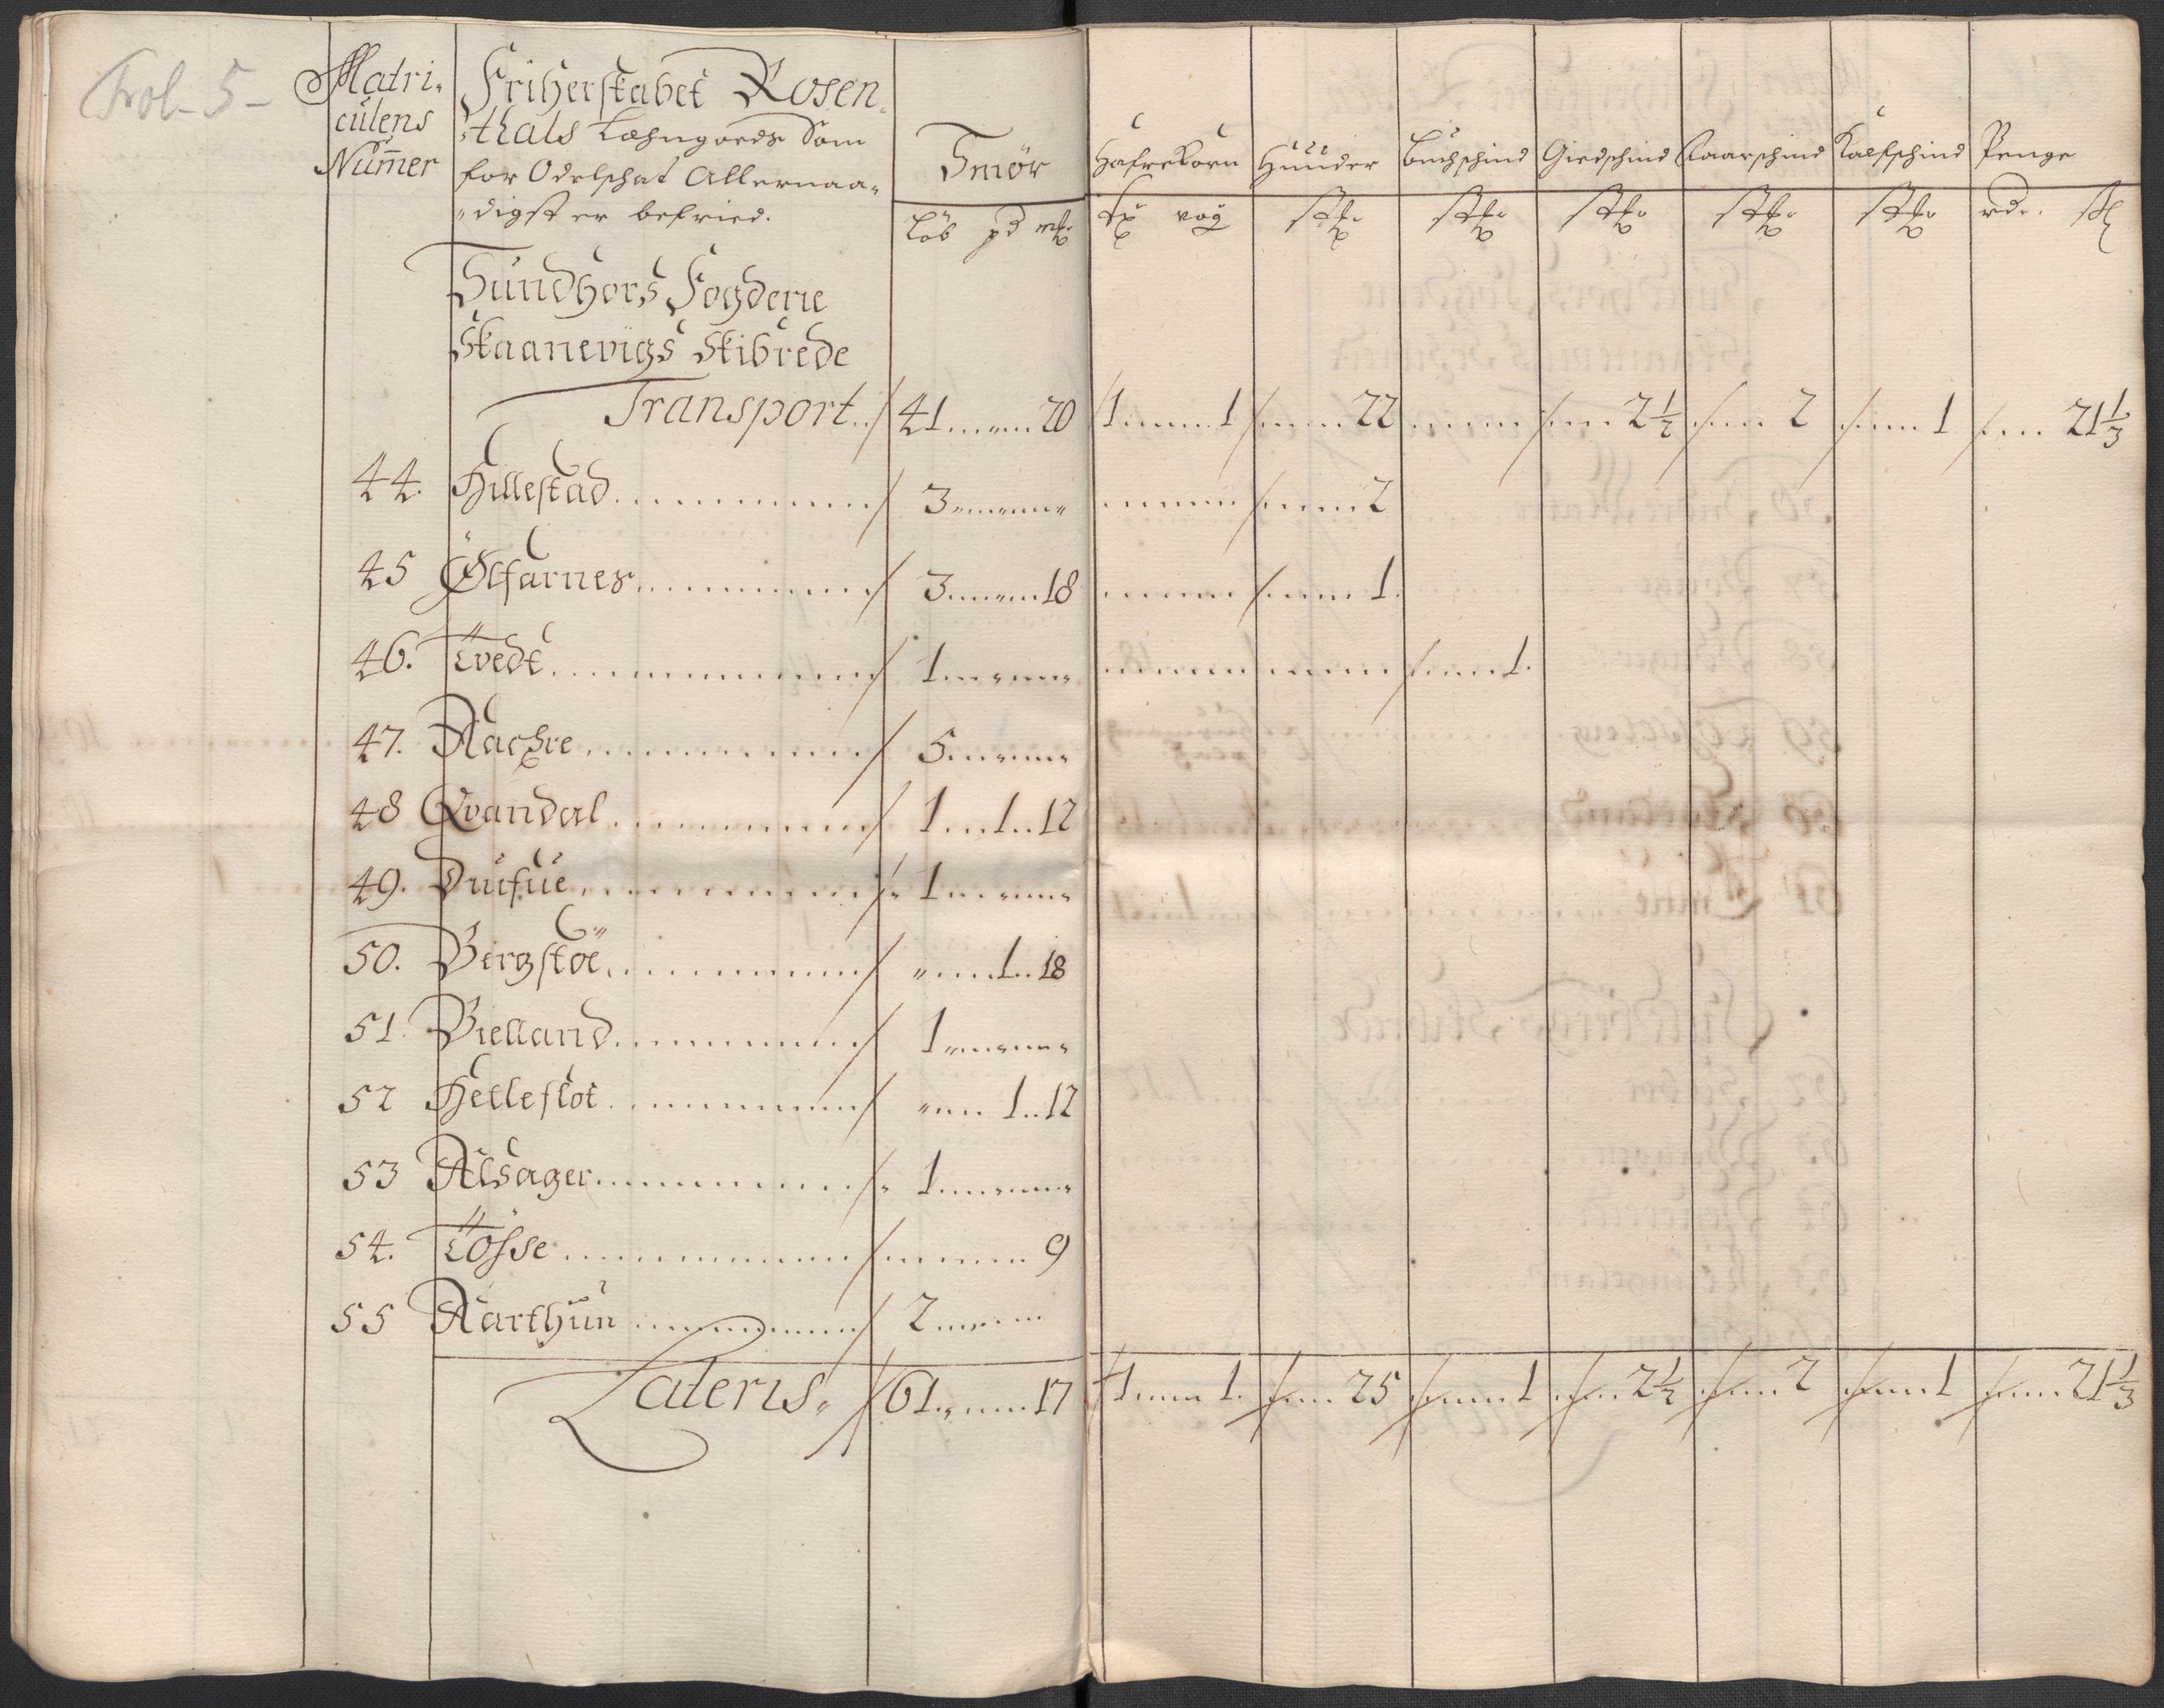 Frol. 5
Matri-
culens
Num̄er
Friherskabet Rosen-
thals Læhngoeds Som
for Odelschat Allernaa-
digst er befried.
Smør
Løb pd mk
Hafrekorn
vog
Huuder
stk.
Buchschind
stk.
Giedschind
stk.
Faarschind
stk.
Kalfschind
stk.
Penge
rdr. ſk
Sundhors Fogderie
Skaanevigs Skibrede
Transport. 41 " 20 1 1 22 2½ 2 1 21⅓
44. Hillestad 3 " " 2
45 Ølfarnes 3 " 18 1
46. Tvedt 1 " " 1.
47. Aachre 5 " "
48 Qvandal 1 1 12
49. Duifue 1 " "
50. Bergstøe " 1 18
51 Bielland 1 " "
52 Helleslot " 1 12
53 Alsager 1 " "
54. Tösse 9
55 Aarthun 2 " "
Lateris. 61 " 17 1 1. 25 1 2½ 2 1 21⅓